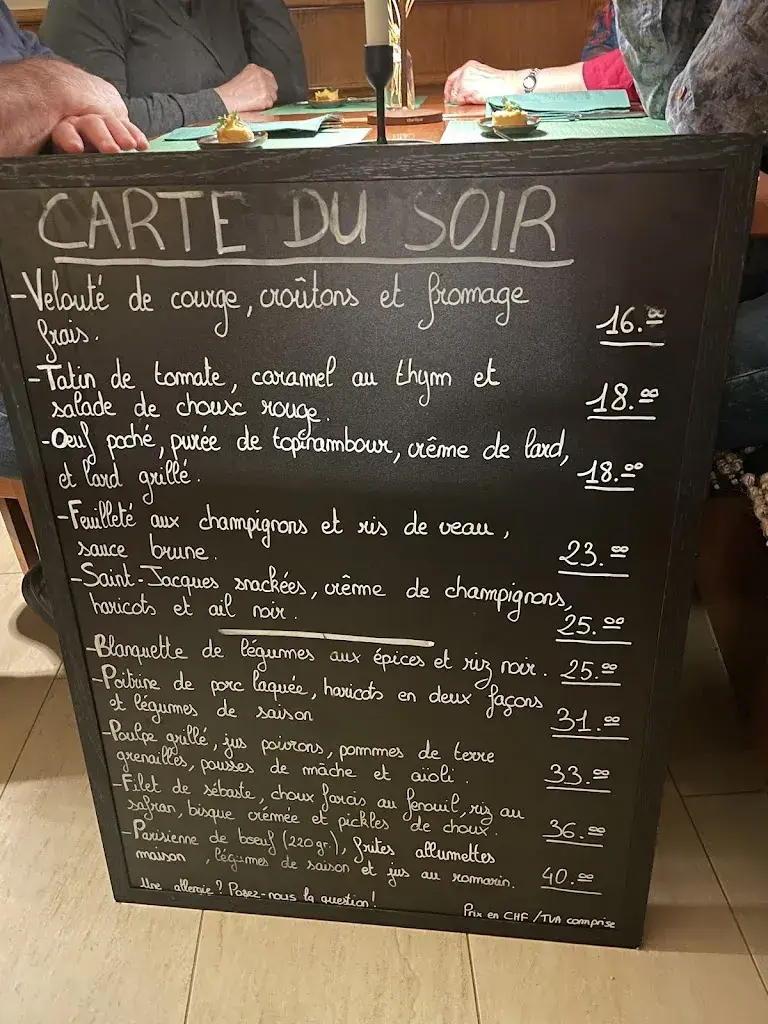 CARTE DU SOIR
-Velouté de courge, croûtons et fromage
frais. 16.∞
-Tatin de tomate, caramel au thym et
salade de choux rouge. 18.∞
-Oeuf poché, purée de topinambour, crème de lard,
et lard grillé. 18.∞
-Feuilleté aux champignons et ris de veau,
sauce brune. 23.∞
-Saint-Jacques snackées, crème de champignons,
haricots et ail noir. 25.∞
-Blanquette de légumes aux épices et riz noir. 25.∞
-Poitrine de porc laquée, haricots en deux façons
et légumes de saison 31.∞
-Poulpe grillé, jus poivrons, pommes de terre
grenailles, pousses de mâche et aïoli. 33.∞
-Filet de sébaste, choux farcis au fenouil, riz au
safran, bisque crémée et pickles de choux. 36.∞
-Parisienne de boeuf (220gr.), frites allumettes
maison, légumes de saison et jus au romarin. 40.∞
Une allergie? Posez-nous la question!
Prix en CHF /TVA comprise